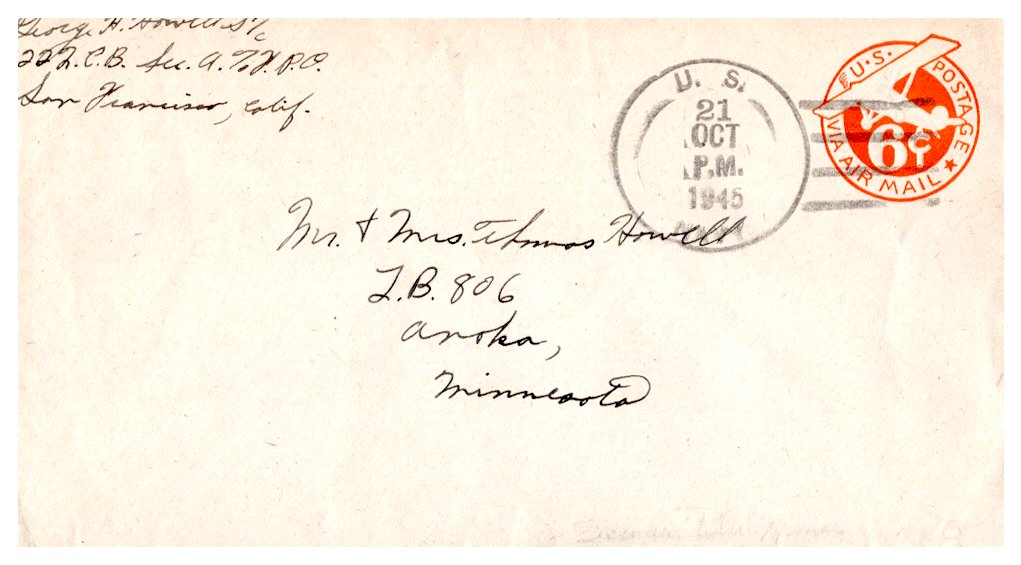 George H. Howell S 1/c
222 C.B. Sec. A. % F.P.O.
San Francisco, Calif.
U. S.
21
OCT
P.M.
1945
U.S. POSTAGE
6¢
VIA AIR MAIL
Mr. & Mrs. Thomas Howell
L.B. 806
Anoka,
Minnesota